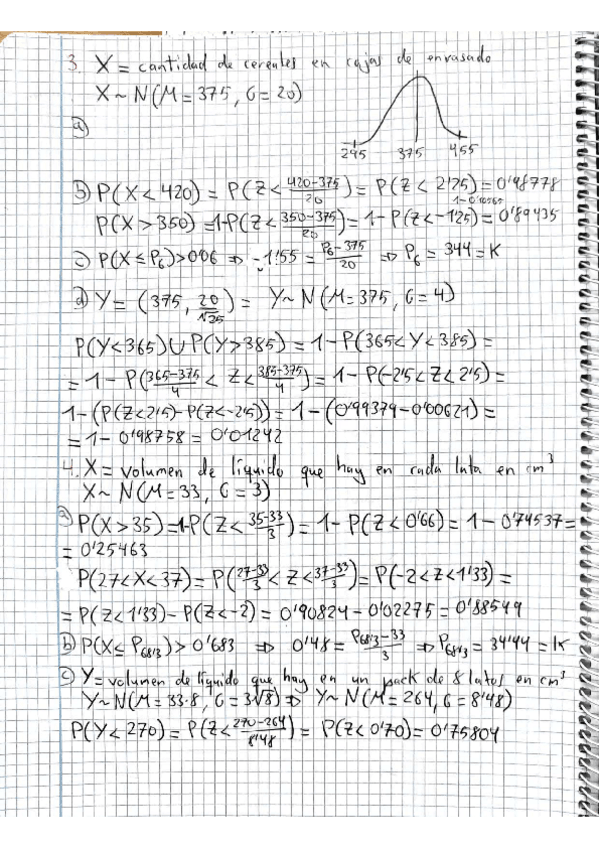 3. X = cantidad de cereales en cajas de envasado
X ~ N(M = 375, G = 20)
a)
295 375 455
b) P(X < 420) = P(Z < (420-375)/20) = P(Z < 2'25) = 0'98778
1-0'10565
P(X > 350) = 1-P(Z < (350-375)/20) = 1 - P(Z < -1'25) = 0'89435
c) P(X ≤ P6) > 0'06 ⇒ -1'55 = (P6-375)/20 ⇒ P6 = 344 = K
d) Y = (375, 20/√25) = Y ~ N(M = 375, G = 4)
P(Y < 365) ∪ P(Y > 385) = 1 - P(365 < Y < 385) =
= 1 - P((365-375)/4 < Z < (385-375)/4) = 1 - P(-2'5 < Z < 2'5) =
1 - (P(Z < 2'5) - P(Z < -2'5)) = 1 - (0'99379 - 0'00621) =
= 1 - 0'98758 = 0'01242
4. X = volumen de líquido que hay en cada lata en cm³
X ~ N(M = 33, G = 3)
a) P(X > 35) = 1-P(Z < (35-33)/3) = 1 - P(Z < 0'66) = 1 - 0'74537 =
= 0'25463
P(27 < X < 37) = P((27-33)/3 < Z < (37-33)/3) = P(-2 < Z < 1'33) =
= P(Z < 1'33) - P(Z < -2) = 0'90824 - 0'02275 = 0'88549
b) P(X ≤ P68'3) > 0'683 ⇒ 0'48 = (P68'3-33)/3 ⇒ P68'3 = 34'44 = K
c) Y = volumen de líquido que hay en un pack de 8 latas en cm³
Y ~ N(M = 33·8, G = 3√8) ⇒ Y ~ N(M = 264, G = 8'48)
P(Y < 270) = P(Z < (270-264)/8'48) = P(Z < 0'70) = 0'75804